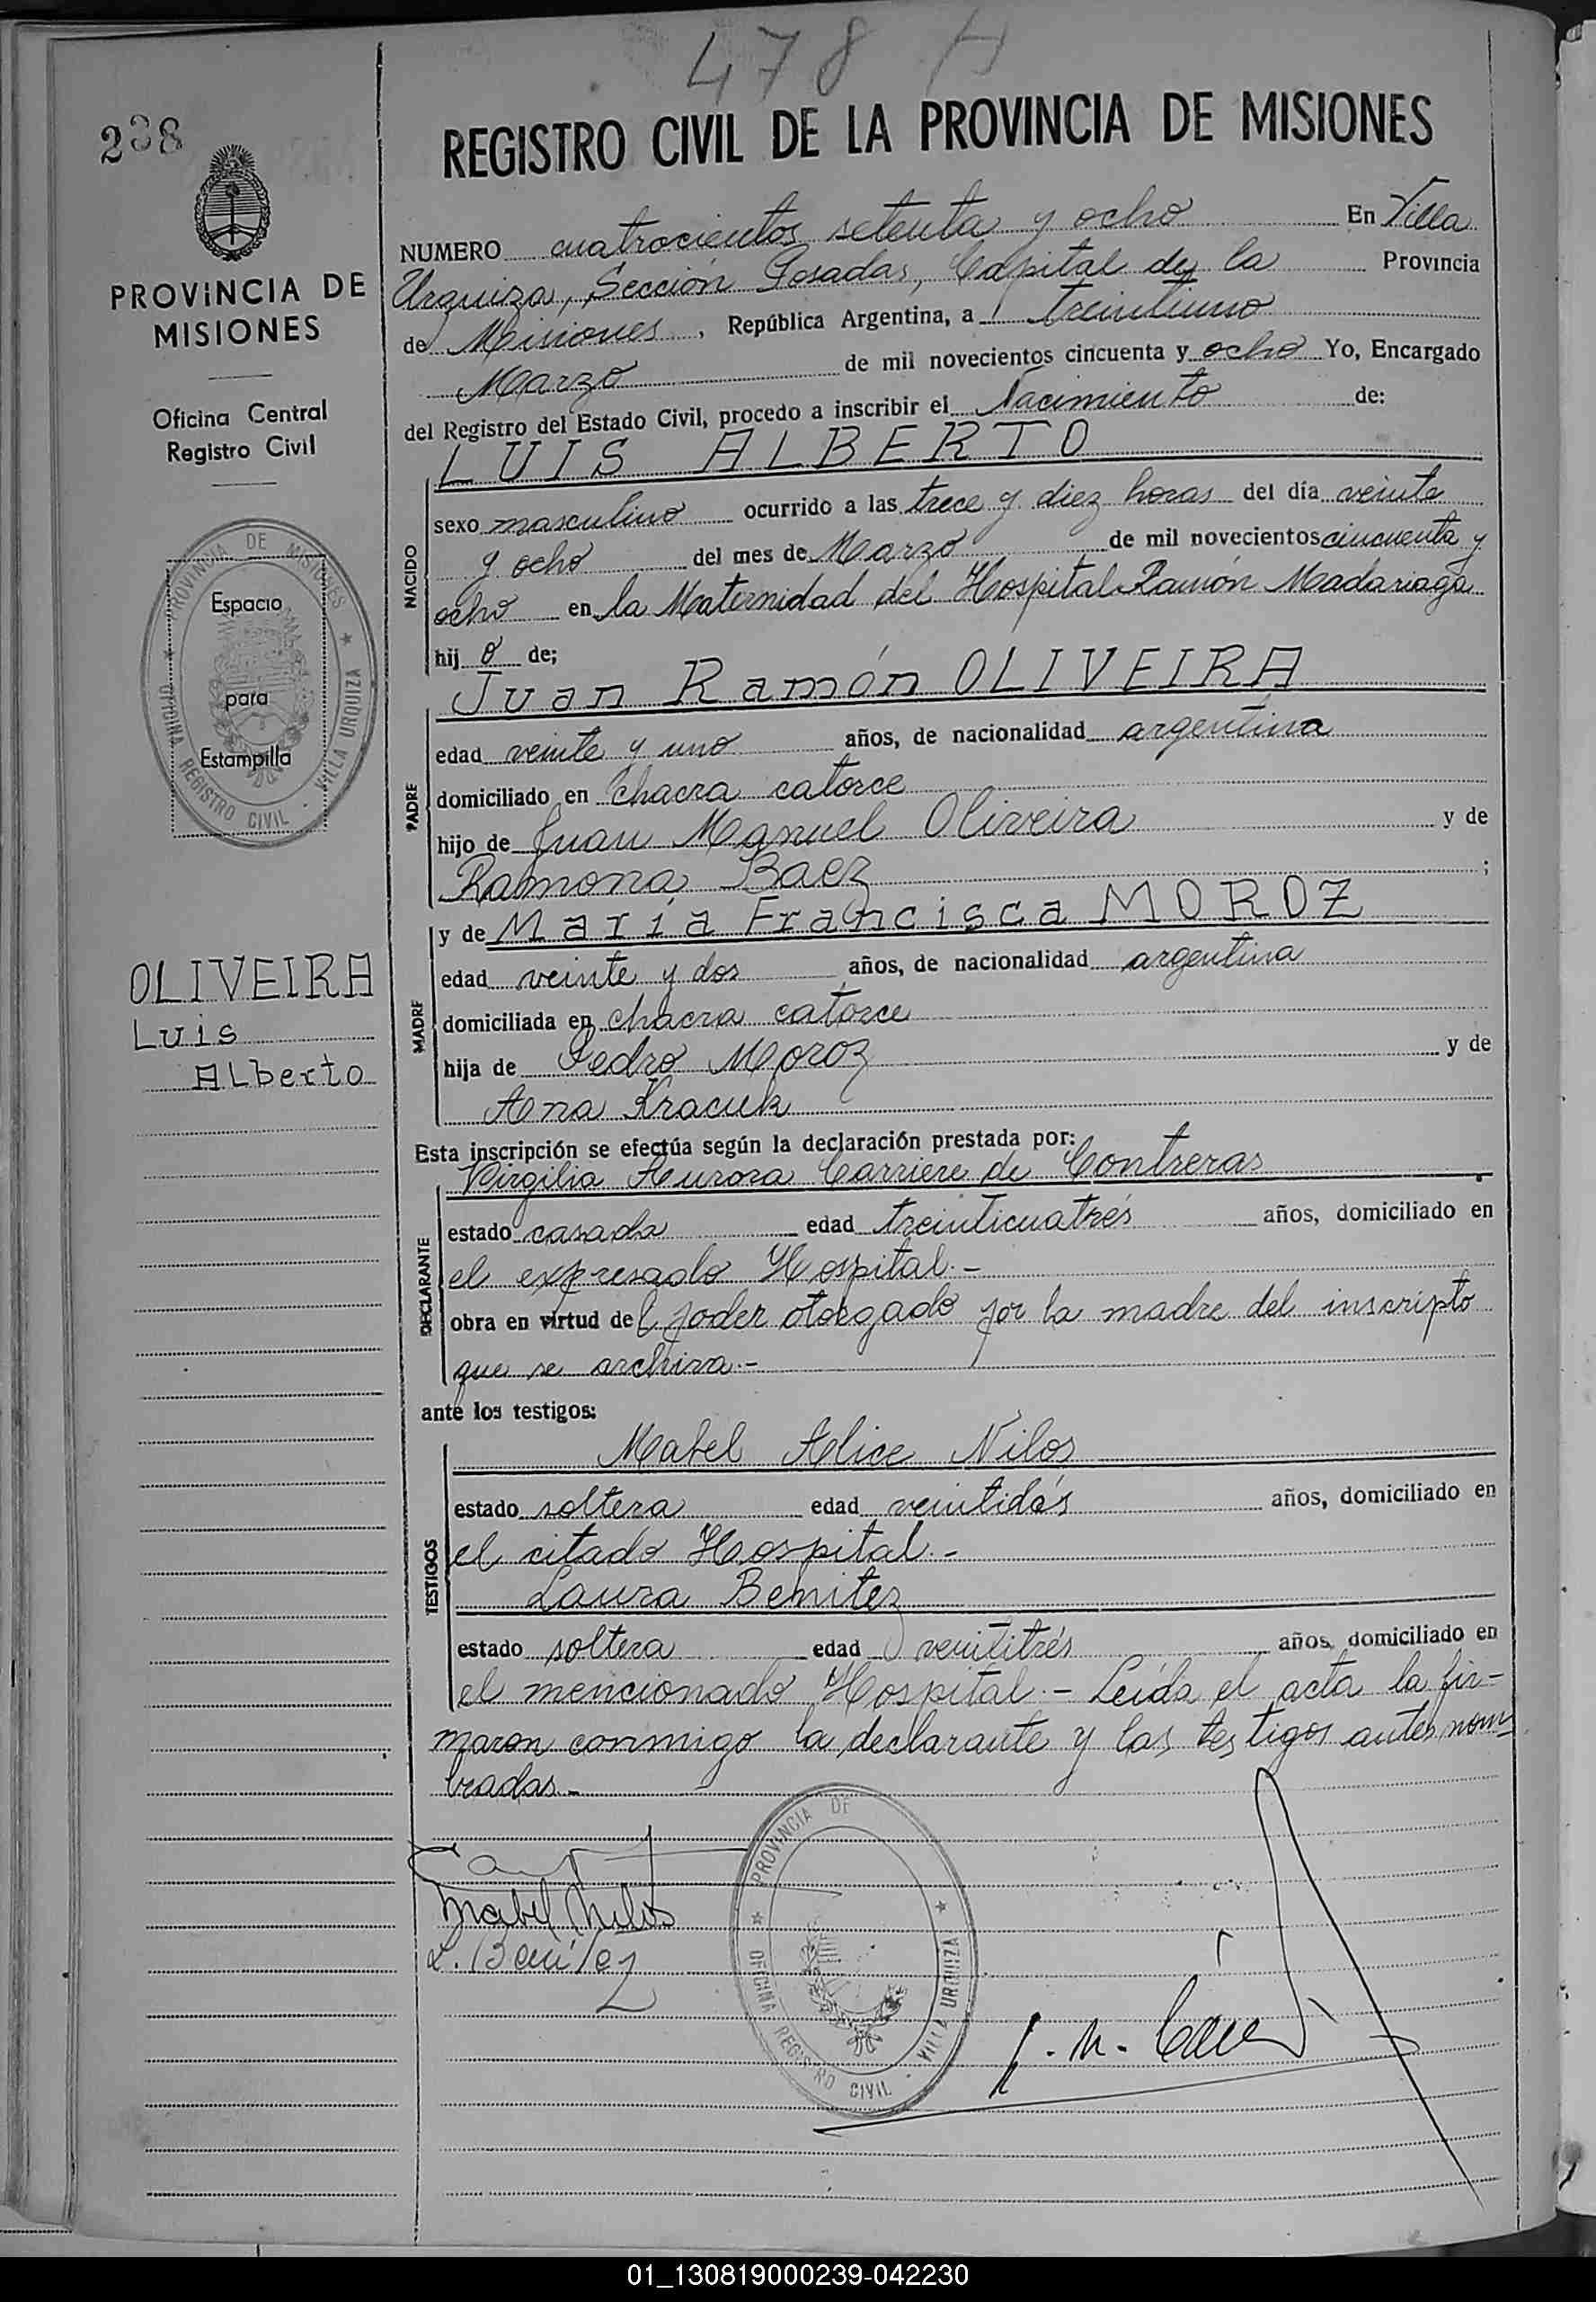 478 A
238
REGISTRO CIVIL DE LA PROVINCIA DE MISIONES
PROVINCIA DE
MISIONES
Oficina Central
Registro Civil
PROVINCIA DE MISIONES
OFICINA REGISTRO CIVIL - VILLA URQUIZA
Espacio
para
Estampilla
OLIVEIRA
Luis
Alberto
NUMERO cuatrocientos setenta y ocho En Villa
Urquiza, Sección Posadas, Capital de la Provincia
de Misiones, República Argentina, a treintiuno
Marzo de mil novecientos cincuenta y ocho Yo, Encargado
del Registro del Estado Civil, procedo a inscribir el Nacimiento de:
LUIS ALBERTO
NACIDO
sexo masculino ocurrido a las trece y diez horas del día veinte
y ocho del mes de Marzo de mil novecientos cincuenta y
ocho en la Maternidad del Hospital Ramón Madariaga
hij o de;
Juan Ramón OLIVEIRA
PADRE
edad veinte y uno años, de nacionalidad argentina
domiciliado en chacra catorce
hijo de Juan Manuel Oliveira y de
Ramona Baez ;
y de María Francisca MOROZ
MADRE
edad veinte y dos años, de nacionalidad argentina
domiciliada en chacra catorce
hija de Pedro Moroz y de
Ana Kracuk
Esta inscripción se efectúa según la declaración prestada por:
Virgilia Aurora Carriere de Contreras
DECLARANTE
estado casada edad treinticuatrés años, domiciliado en
el expresado Hospital.-
obra en virtud del poder otorgado por la madre del inscripto
que se archiva.-
ante los testigos:
TESTIGOS
Mabel Alice Nilos
estado soltera edad veintidós años, domiciliado en
el citado Hospital.-
Laura Benitez
estado soltera edad veintitrés años, domiciliado en
el mencionado Hospital.- Leída el acta la fir-
maron conmigo la declarante y las testigos antes nom
bradas.-
Mabel Nilos
L. Benítez
PROVINCIA DE
OFICINA REGISTRO CIVIL - VILLA URQUIZA
01_130819000239-042230